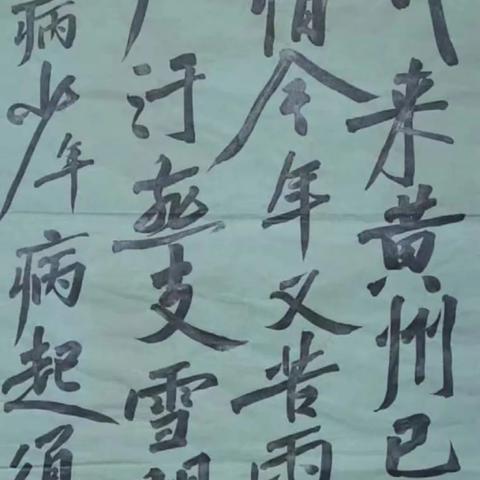 来黄州已
惜今年又苦雨
汙燕支雪
病少年病起须